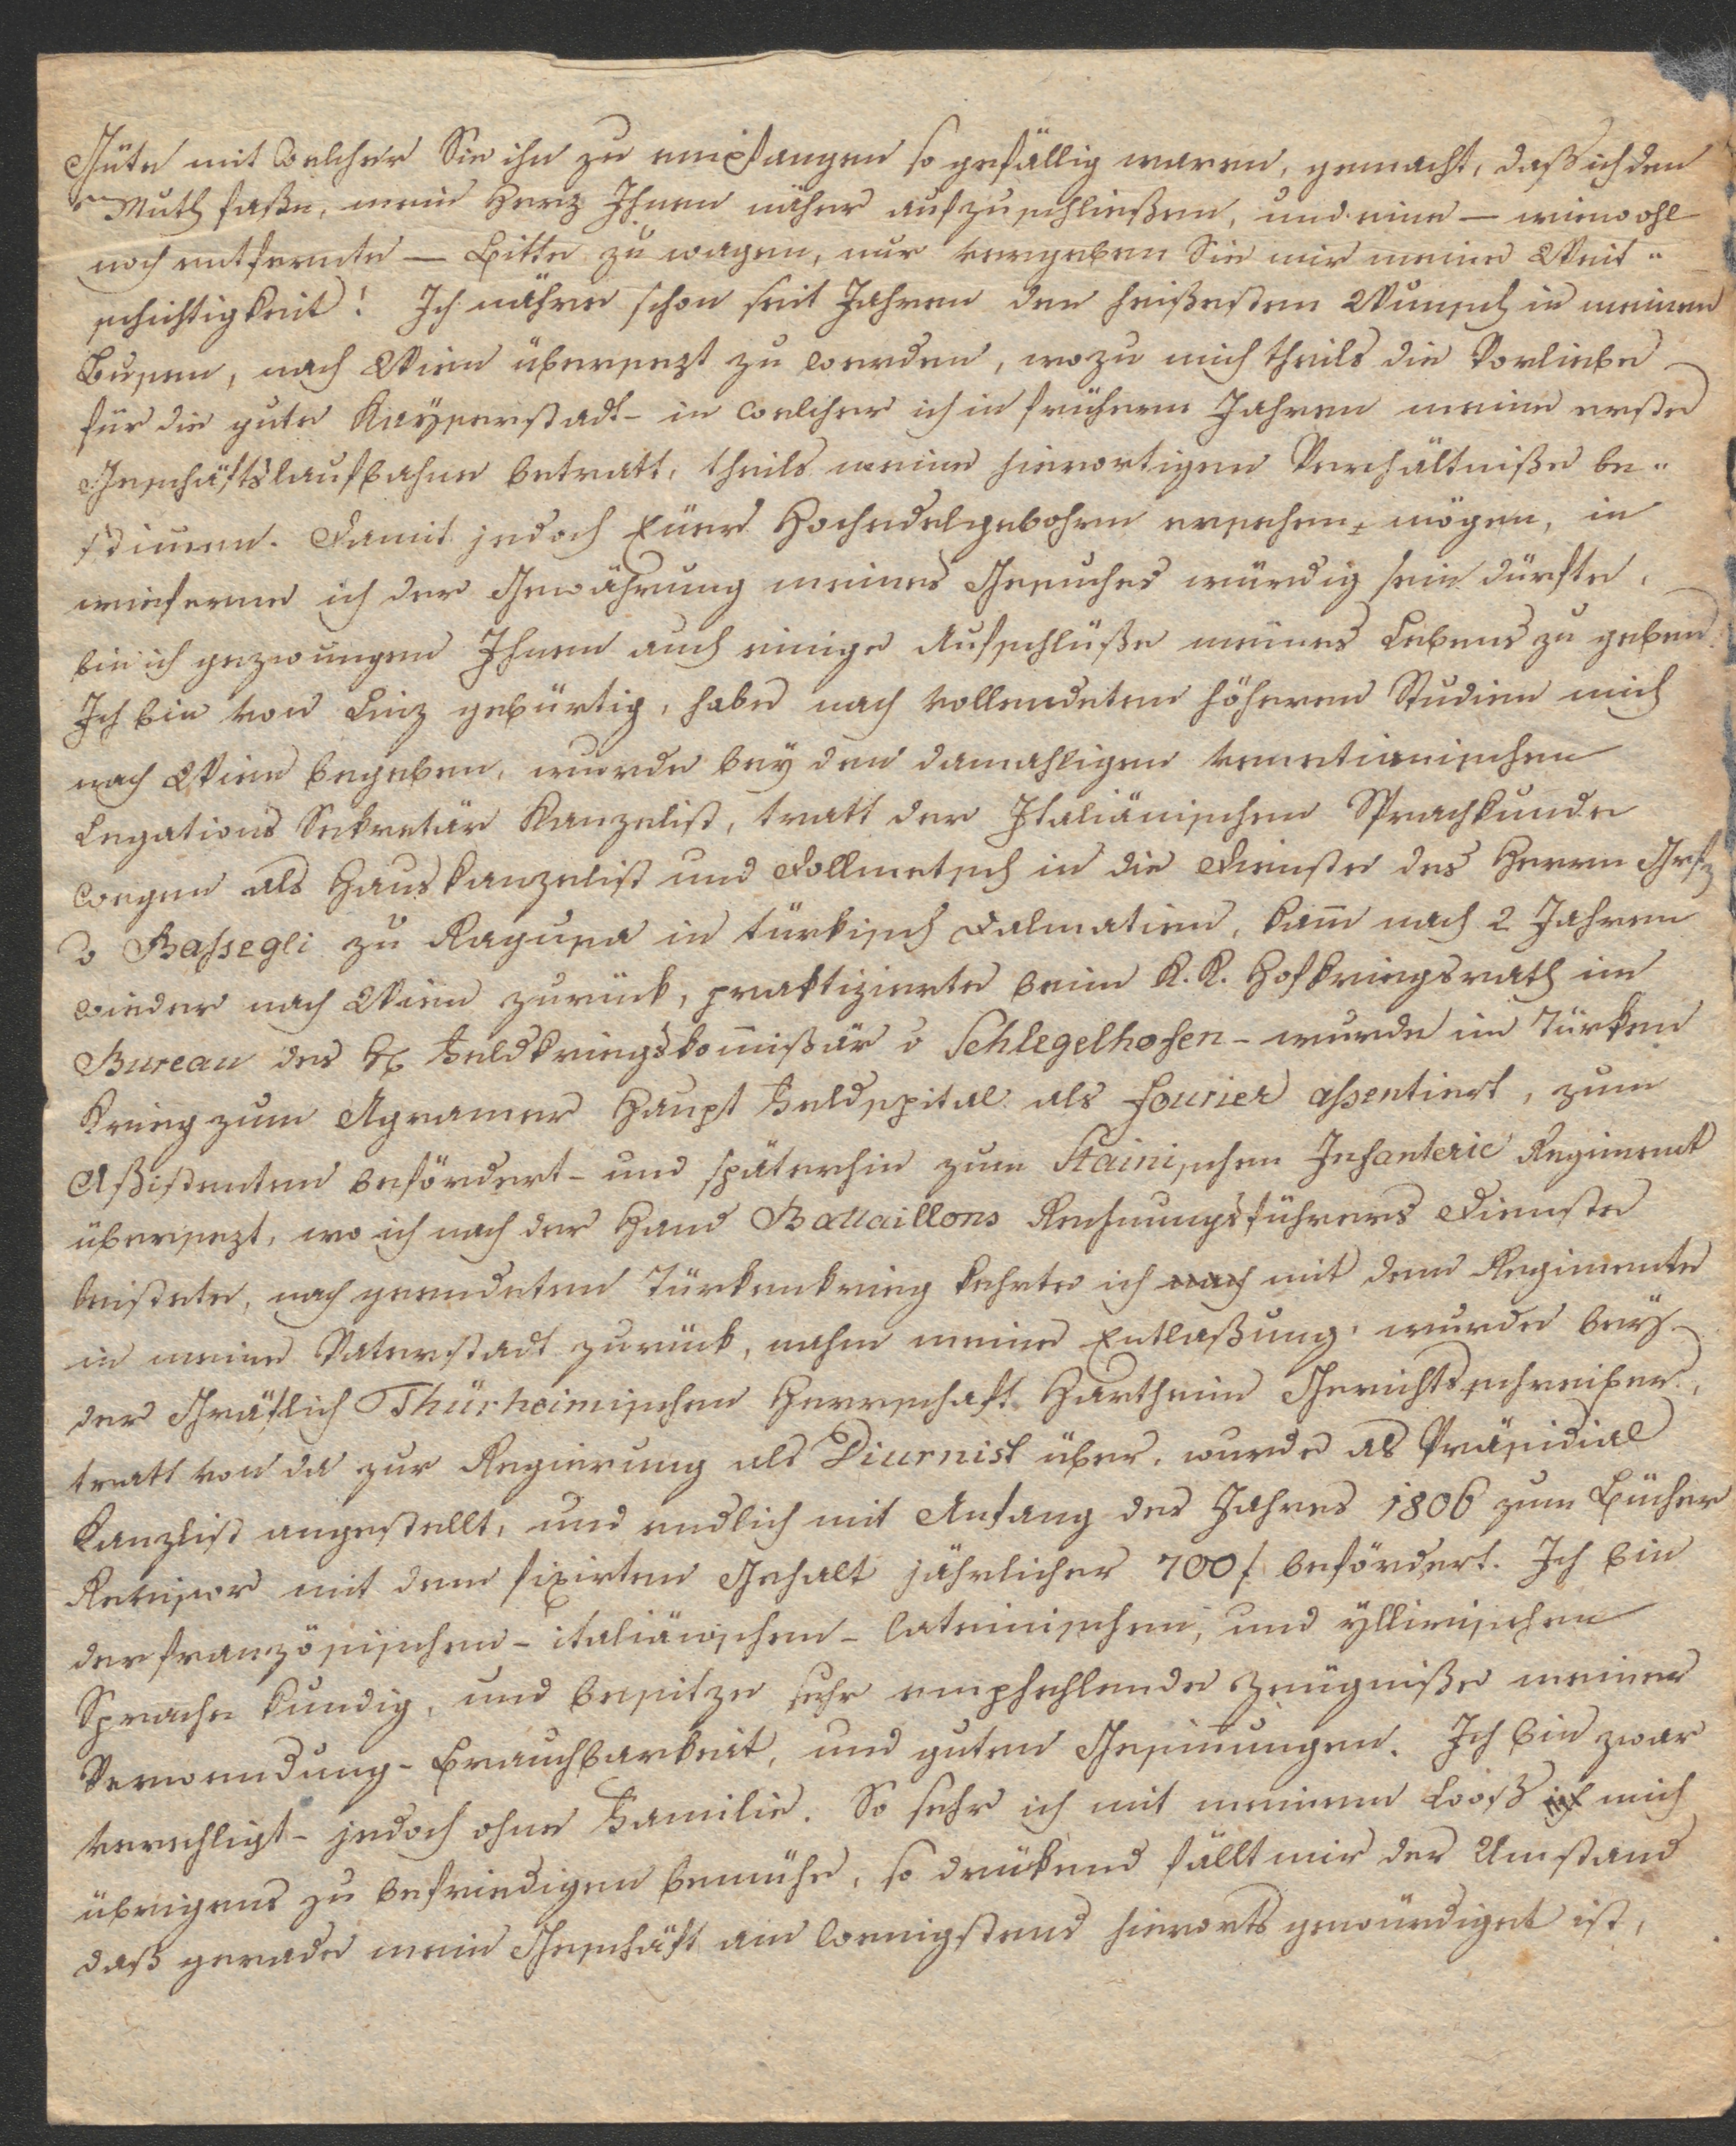 Güte mit welcher Sie ihn zu empfangen so gefällig waren, gemacht, daß ich den
Muth faße, mein Herz Ihnen näher aufzuschließen, und eine — wiewohl
noch entfernte — Bitte zu wagen, nur vergeben Sie mir meine Weit-
schichtigkeit! Ich nähre schon seit Jahren den heißesten Wunsch in meinem
Busen, nach Wien übersezt zu werden, wozu mich theils die Vorliebe
für die gute Kayserstadt - in welcher ich in frühern Jahren meine erste
Geschäftslaufbahne betratt, theils meine hierortigen Verhältniße be-
stimen. Damit jedoch Euer Hochedelgebohren ersehen mögen, in
wieferne ich der Gewährung meines Gesuches würdig sein dürfte,
bin ich gezwungen Ihnen auch einige Aufschlüße meines Lebens zu geben.
Ich bin von Linz gebürtig, habe nach vollendeten höheren Studien mich
nach Wien begeben, wurde bey den damahligen venetianischen
Legations Sekretär Kanzelist, tratt der Italiänischen Sprachkunde
wegen als Hauskanzelist und Dollmetsch in die Dienste des Herrn Grf
v Bassegli zu Ragusa in türkisch Dalmatien, kam nach 2 Jahren
wieder nach Wien zurück, praktizierte beim K. K. Hofkriegsrath im
Bureau des H Feldkriegskomißär v Schlegelhofen - wurde im Türken
Krieg zum Agramer Haupt Feldspital als Fourier assentiert, zum
Aßistenten befördert - und späterhin zum Stainischen Infanterie Regiment
übersezt, wo ich nach der Hand Battaillons Rechnungsführers Dienste
leistete, nach geendeten Türkenkrieg kehrte ich nach mit dem Regimente
in meine Vaterstadt zurück, nahm meine Entlaßung, wurde bey
der Gräflich Thürheimischen Herrschaft Hartheim Gerichtsschreiber,
tratt von da zur Regierung als Diurnist über, wurde als Präsidial
Kanzlist angestellt, und endlich mit Anfang des Jahres 1806 zum Bücher
Revisor mit dem fixirten Gehalt jährlicher 700 f befördert. Ich bin
der französischen - italiänischen - lateinischen, und yllirischen
Sprache kundig, und besitze sehr empfehlende Zeügniße meiner
Verwendung - Brauchbarkeit, und guten Gesinungen. Ich bin zwar
verehligt - jedoch ohne Familie. So sehr ich mit meinem Looß mich
übrigens zu befriedigen bemühe, so drükend fällt mir der Umstand
daß gerade mein Geschäft am wenigstens hierorts gewürdiget ist,